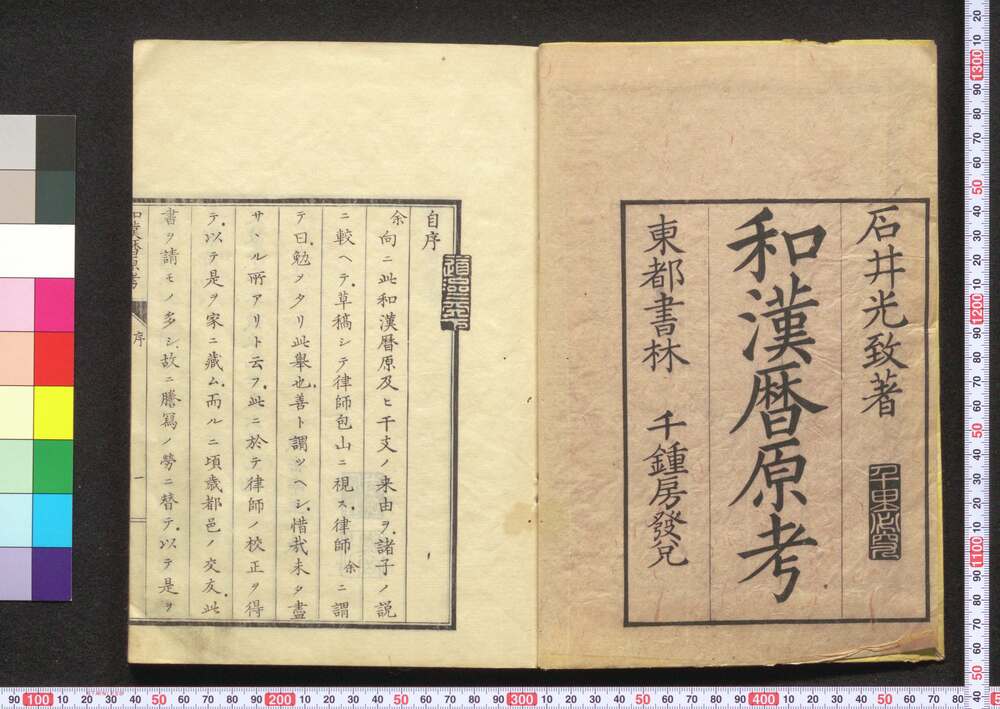 石井光致著
和漢暦原考
東都書林 千鍾房發兌
自序
余向ニ此和漢暦原及ヒ干支ノ来由ヲ諸子ノ説
ニ較ヘテ草稿シテ律師包山ニ視ス律師余ニ謂
テ曰勉メタリ此舉也善ト謂ツヘシ惜哉未タ盡
サヽル所アリト云フ此ニ於テ律師ノ校正ヲ得
テ以テ是ヲ家ニ藏ム而ルニ頃歳都邑ノ交友此
書ヲ請モノ多シ故ニ謄寫ノ勞ニ替テ以テ是ヲ
序
一